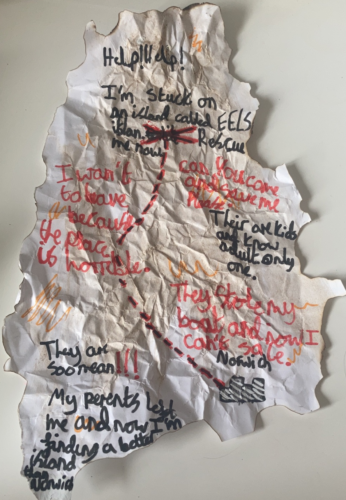 Help! Help!
I'm stuck on
an island called EELS
island. Rescue
me now
I wan't
to leave
because
the place
is horrible.
can you come
and save me
Please
Their are kids
and know
adult only
one.
They stole my
boat and now I
can't sale.
Norwich
They are
soo mean!!!
My perents left
me and now I'm
finding a better
island